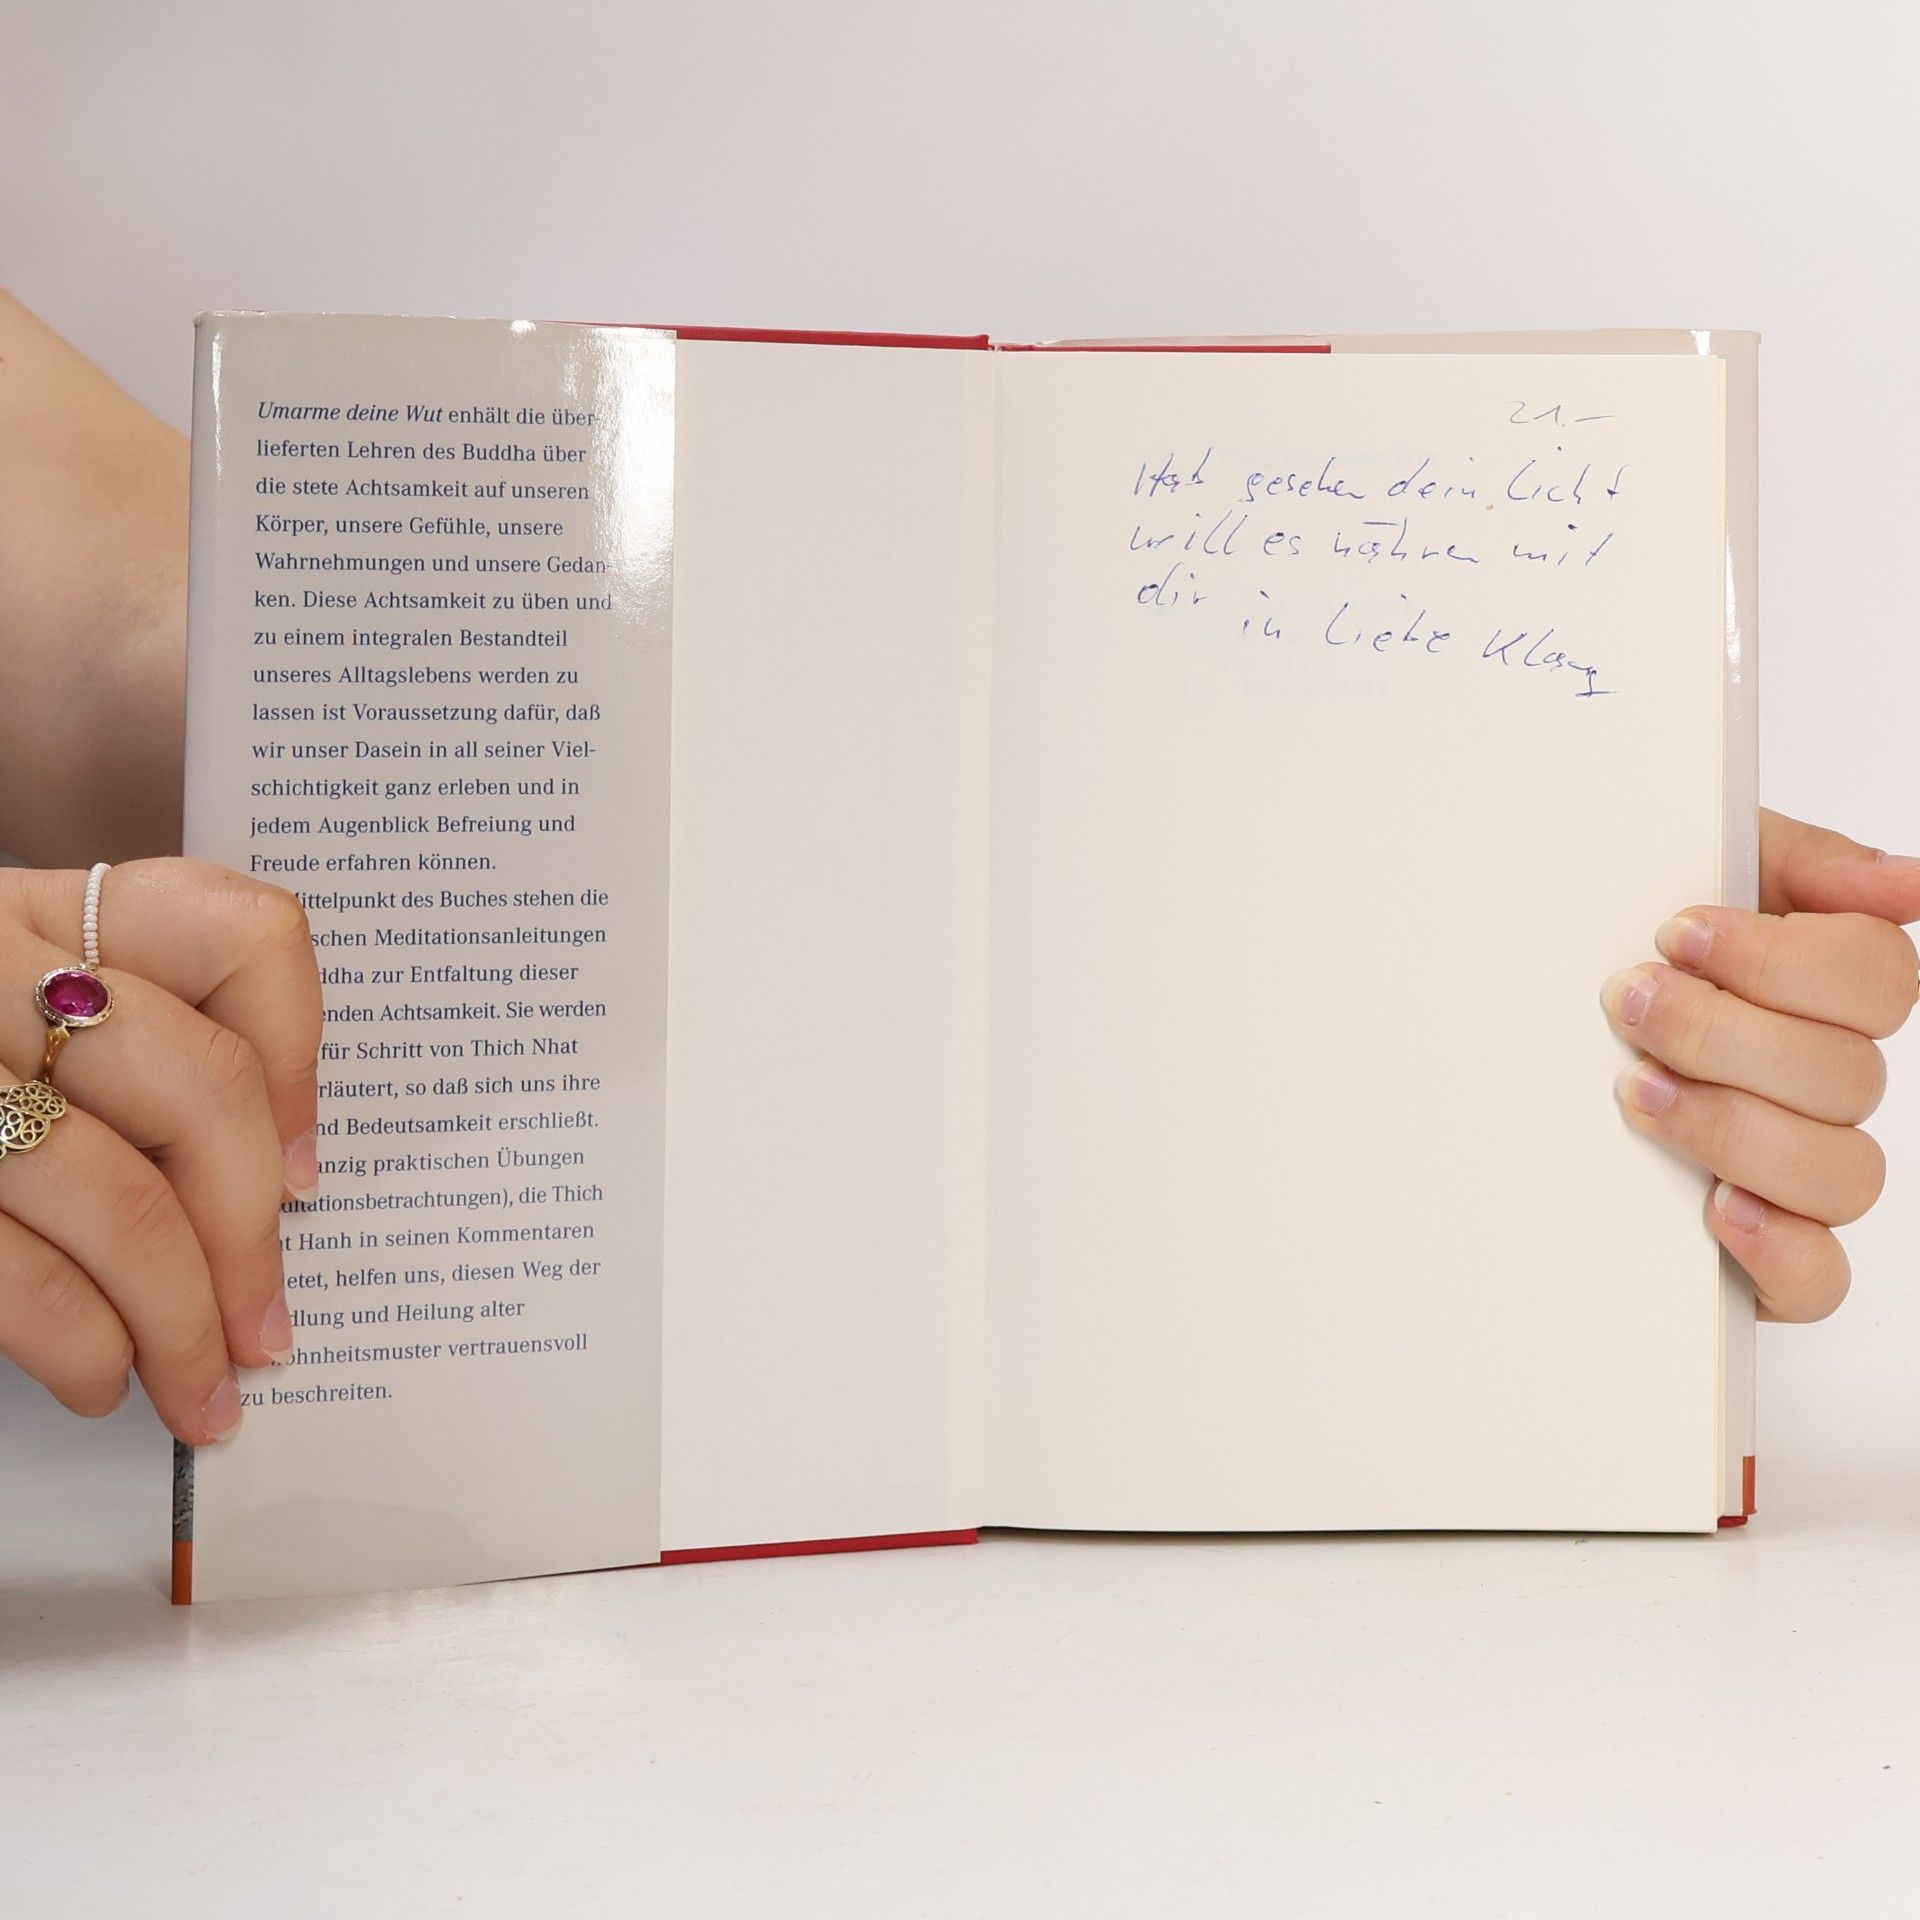 Umarme deine Wut enhält die über-
lieferten Lehren des Buddha über
die stete Achtsamkeit auf unseren
Körper, unsere Gefühle, unsere
Wahrnehmungen und unsere Gedan-
ken. Diese Achtsamkeit zu üben und
zu einem integralen Bestandteil
unseres Alltagslebens werden zu
lassen ist Voraussetzung dafür, daß
wir unser Dasein in all seiner Viel-
schichtigkeit ganz erleben und in
jedem Augenblick Befreiung und
Freude erfahren können.
ittelpunkt des Buches stehen die
schen Meditationsanleitungen
ddha zur Entfaltung dieser
enden Achtsamkeit. Sie werden
für Schritt von Thich Nhat
rläutert, so daß sich uns ihre
nd Bedeutsamkeit erschließt.
anzig praktischen Übungen
ditationsbetrachtungen), die Thich
at Hanh in seinen Kommentaren
ietet, helfen uns, diesen Weg der
dlung und Heilung alter
ohnheitsmuster vertrauensvoll
zu beschreiten.
21.-
Hab gesehen dein Licht
will es nähren mit
dir
in Liebe